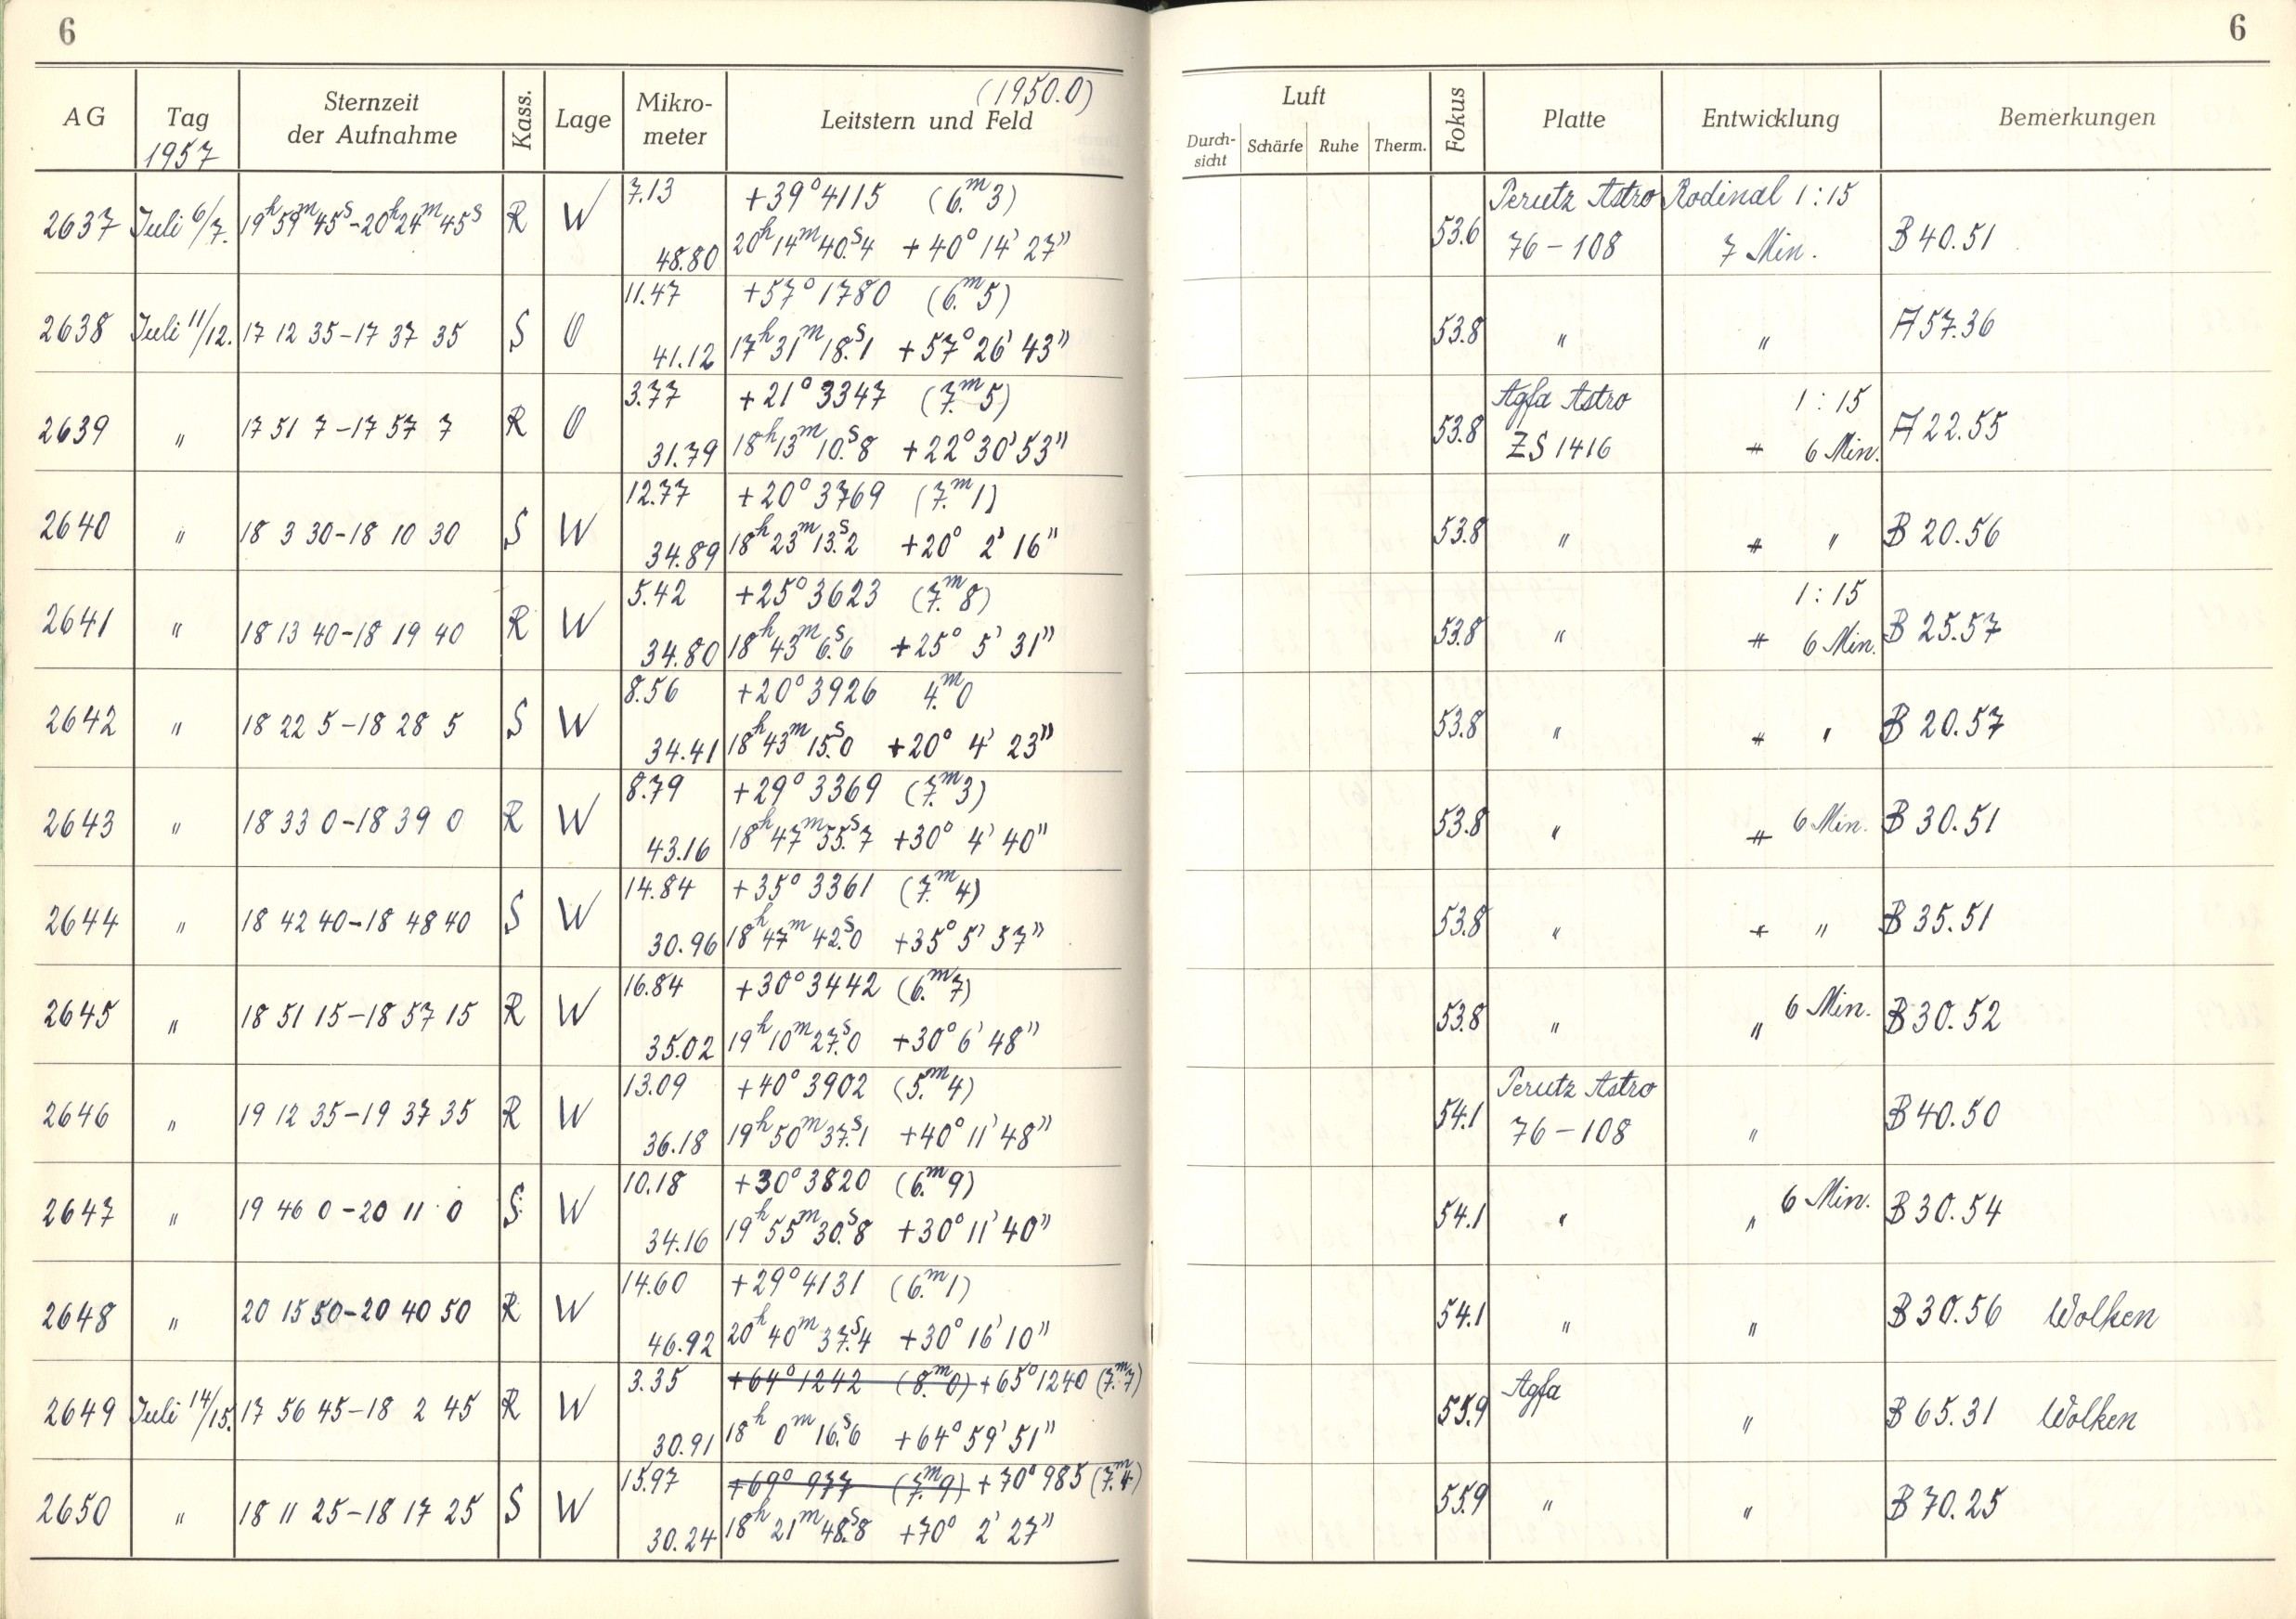 6
6
(1950.0)
AG Tag 1957 Sternzeit der Aufnahme Kass. Lage Mikro-meter Leitstern und Feld Luft Durch-sicht Schärfe Ruhe Therm. Fokus Platte Entwicklung Bemerkungen
7.13 +39° 4115 (6.ᵐ3) Perutz Astro Rodinal 1:15
2637 Juli 6/7. 19ʰ59ᵐ45ˢ-20ʰ24ᵐ45ˢ R W 48.80 20ʰ14ᵐ40.ˢ4 +40° 14' 27" 53.6 76-108 7 Min. B 40.51
11.47 +57° 1780 (6.ᵐ5)
2638 Juli 11/12. 17 12 35-17 37 35 S O 41.12 17ʰ31ᵐ18.ˢ1 +57° 26' 43" 53.8 " " A 57.36
3.77 +21° 3347 (7.ᵐ5) Agfa Astro 1:15
2639 " 17 51 7-17 57 7 R O 31.79 18ʰ13ᵐ10.ˢ8 +22° 30' 53" 53.8 ZS 1416 " 6 Min. A 22.55
12.77 +20° 3769 (7.ᵐ1)
2640 " 18 3 30-18 10 30 S W 34.89 18ʰ23ᵐ13.ˢ2 +20° 2' 16" 53.8 " " " B 20.56
5.42 +25° 3623 (7.ᵐ8) 1:15
2641 " 18 13 40-18 19 40 R W 34.80 18ʰ43ᵐ6.ˢ6 +25° 5' 31" 53.8 " " 6 Min. B 25.57
8.56 +20° 3926 4.ᵐ0
2642 " 18 22 5-18 28 5 S W 34.41 18ʰ43ᵐ15.ˢ0 +20° 4' 23" 53.8 " " " B 20.57
8.79 +29° 3369 (7.ᵐ3)
2643 " 18 33 0-18 39 0 R W 43.16 18ʰ47ᵐ55.ˢ7 +30° 4' 40" 53.8 " " 6 Min. B 30.51
14.84 +35° 3361 (7.ᵐ4)
2644 " 18 42 40-18 48 40 S W 30.96 18ʰ47ᵐ42.ˢ0 +35° 5' 57" 53.8 " " " B 35.51
16.84 +30° 3442 (6.ᵐ7)
2645 " 18 51 15-18 57 15 R W 35.02 19ʰ10ᵐ27.ˢ0 +30° 6' 48" 53.8 " " 6 Min. B 30.52
13.09 +40° 3902 (5.ᵐ4) Perutz Astro
2646 " 19 12 35-19 37 35 R W 36.18 19ʰ50ᵐ37.ˢ1 +40° 11' 48" 54.1 76-108 " B 40.50
10.18 +30° 3820 (6.ᵐ9)
2647 " 19 46 0-20 11 0 S W 34.16 19ʰ55ᵐ30.ˢ8 +30° 11' 40" 54.1 " " 6 Min. B 30.54
14.60 +29° 4131 (6.ᵐ1)
2648 " 20 15 50-20 40 50 R W 46.92 20ʰ40ᵐ37.ˢ4 +30° 16' 10" 54.1 " " B 30.56 Wolken
3.35 +64° 1242 (8.ᵐ0) +65° 1240 (7.ᵐ7) Agfa
2649 Juli 14/15. 17 56 45-18 2 45 R W 30.91 18ʰ 0ᵐ16.ˢ6 +64° 59' 51" 55.9 " B 65.31 Wolken
15.97 +69° 977 (7.ᵐ9) +70° 985 (7.ᵐ4)
2650 " 18 11 25-18 17 25 S W 30.24 18ʰ21ᵐ48.ˢ8 +70° 2' 27" 55.9 " " B 70.25